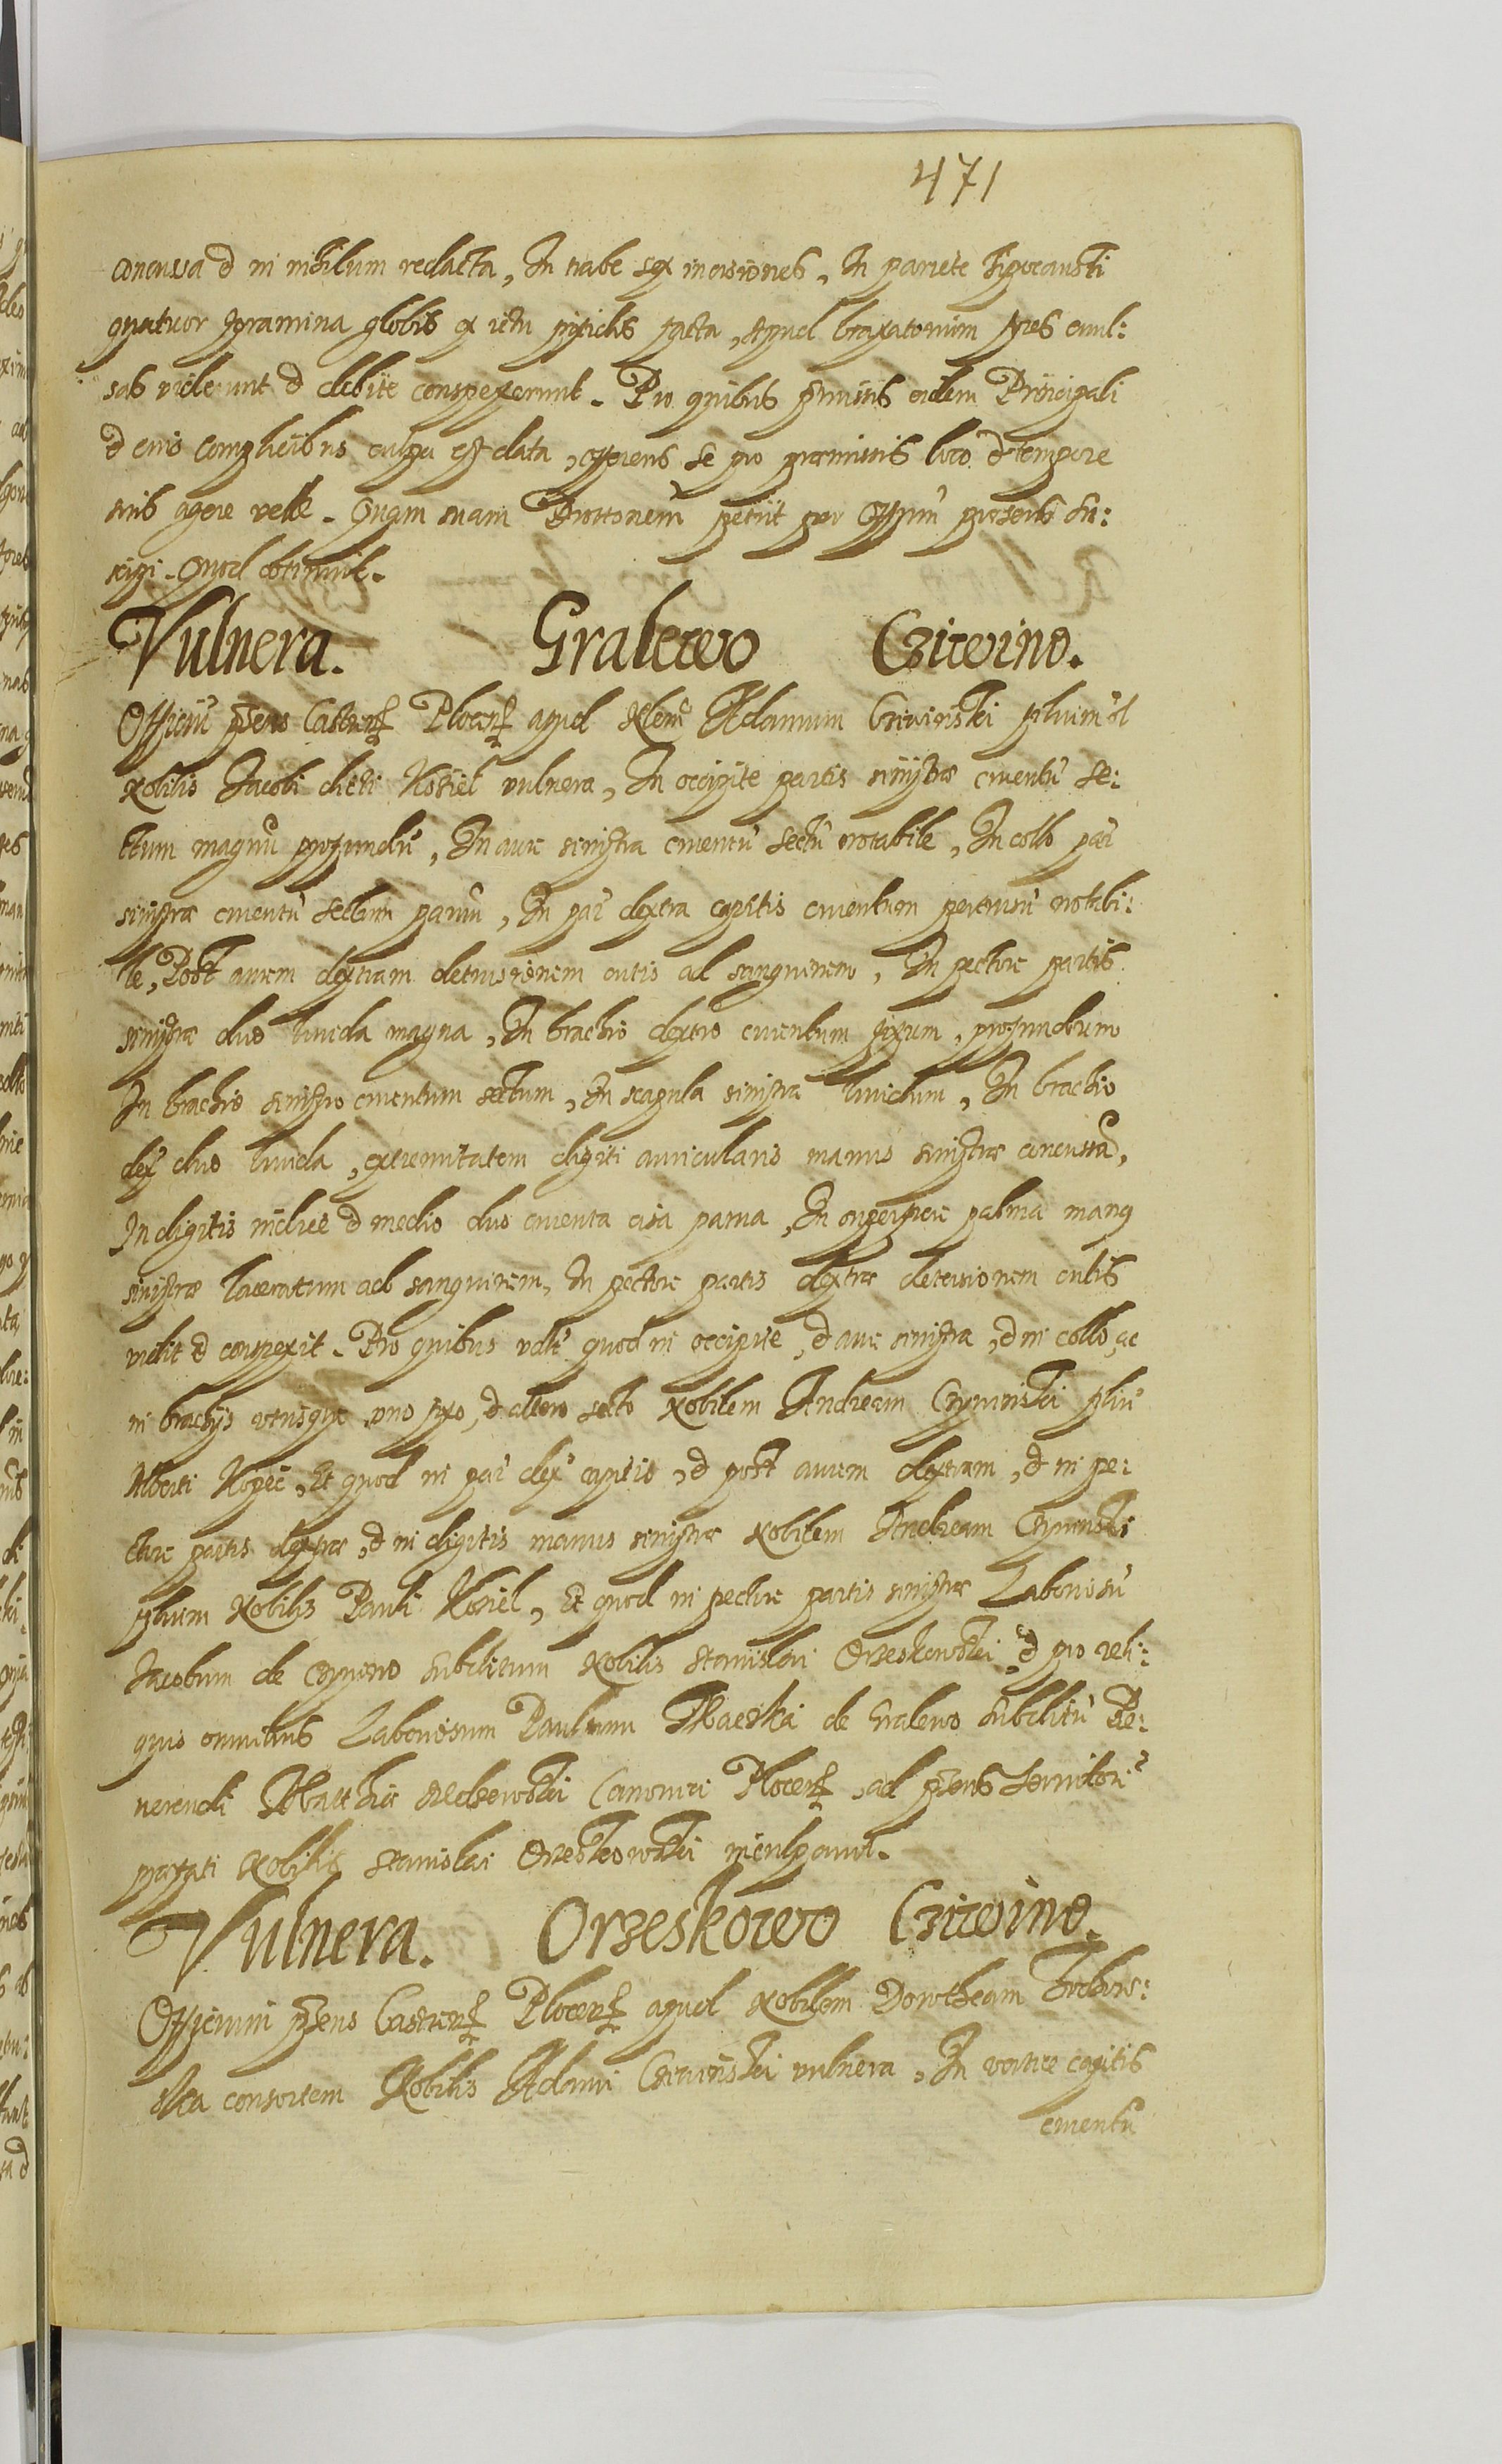 471
concussa et in nihilum redacta, In trabe sex incisiones, In pariete hipocausti
quatuor foramina globis ex ictu pixidis facta, Apud braxatorium fores evul:
sas viderunt et debite conspexerunt. Pro quibus praemissis eidem Principali
et eius complicibus culpa est data, offerens se pro praemissis loco et tempore
suis agere velle. Quam suam Prottonem petiit per Offm praesens su:
scipi. Quod obtinuit.
Vulnera. Gralewo Cziwino.
Officiu pñs Castren Plocen apud Nlem Adamum Cziwinski filium
Nobilis Jacobi dicti Kosiel vulnera, In occipite partis sinistrae cruentu se:
ctum magnu profundu, In aure sinistra cruentu sectu notabile, In collo par
sinistrae cruentu sectum parvu, In par dextra capitis cruentum pertusu notabi:
le, Post aurem dextram detrusionem cutis ad sanguinem, In pectore partis
sinistrae duo livida magna, In brachio dextro cruentum fixum, profundum
In brachio sinistro cruentum sectum, In scapula sinistra lividum, In brachio
dex duo livida, extremitatem digiti auricularis manus sinistrae concussa,
In digitis indice et medio duo cruenta cisa parva, In palma manq
sinistrae laceratum ad sanguinem, In pectore partis dextrae detrusionem cutis
vidit et conspexit. Pro quibus quod in occipite, et aure sinistra, et in collo, ac
in brachijs utrisque uno fixo, et altero secto Nobilem Andream Czywinski filiu
Alberti Kopec, Et quod in par dex capitis, et post aurem dextram, et in pe:
ctore partis dextrae, et in digitis manus sinistrae Nobilem Andream Czywinski
filium Nobilis Pauli Kosiel, Et quod in pectore partis sinistrae Laboriosu
Jacobum de Czywino subditum Nobilis Stanislai Orzeskowski, et pro reli:
quis omnibus Laboriosum Paulum Tkaczka de Gralewo subditu Re:
verendi Matthiae Canonici Plocen, ad pñs servitore
praefati Nobilis Stanislai Orzeskowski inculpavit.
Vulnera. Orzeskowo Cziwino.
Officium pñs Castren Plocen apud Nobilem Dorotheam
consortem Nobilis Adami Cziwinski vulnera, In vertice capitis
cruentu